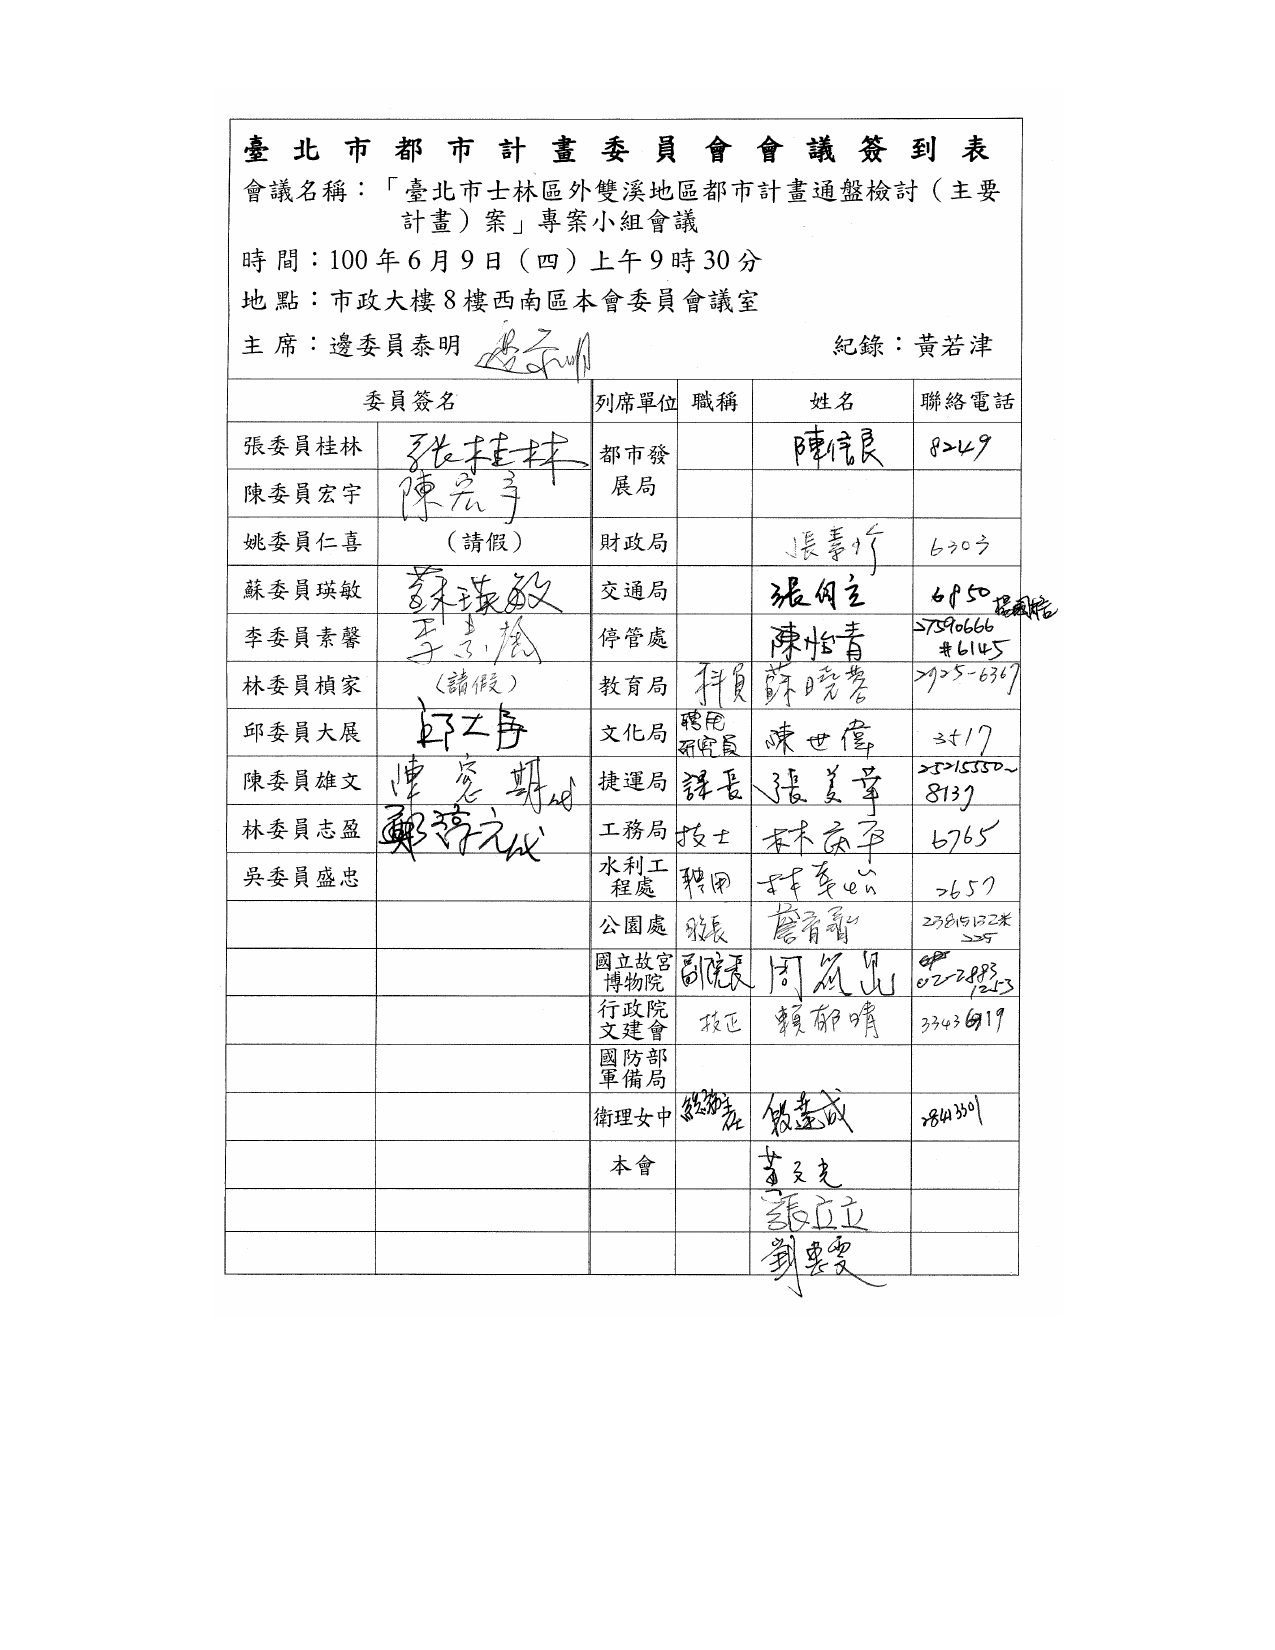 臺北市都市計畫委員會會議簽到表
會議名稱：「臺北市士林區外雙溪地區都市計畫通盤檢討（主要
計畫）案」專案小組會議
時間：100年6月9日（四）上午9時30分
地點：市政大樓8樓西南區本會委員會議室
主席：邊委員泰明 邊泰明 紀錄：黃若津
委員簽名 列席單位 職稱 姓名 聯絡電話
張委員桂林 張桂林 都市發展局 陳信良 8249
陳委員宏宇 陳宏宇
姚委員仁喜 （請假） 財政局 6303
蘇委員瑛敏 蘇瑛敏 交通局 6850
李委員素馨 李素馨 停管處 陳怡青 27590666 #6145
林委員楨家 （請假） 教育局 科員 蘇曉蓉 2725-6367
邱委員大展 邱大展 文化局 聘用研究員 陳世偉 3517
陳委員雄文 捷運局 課長 張美華 25215550~8137
林委員志盈 鄭淳元代 工務局 技士 林 6765
吳委員盛忠 水利工程處 聘用 林 2657
公園處 股長 23815132 225
國立故宮博物院 副院長 周 02-2883 1253
行政院文建會 技正 賴郁晴 3343
國防部軍備局
衛理女中 總務主任 28413301
本會 黃文光
張立立
劉惠雯